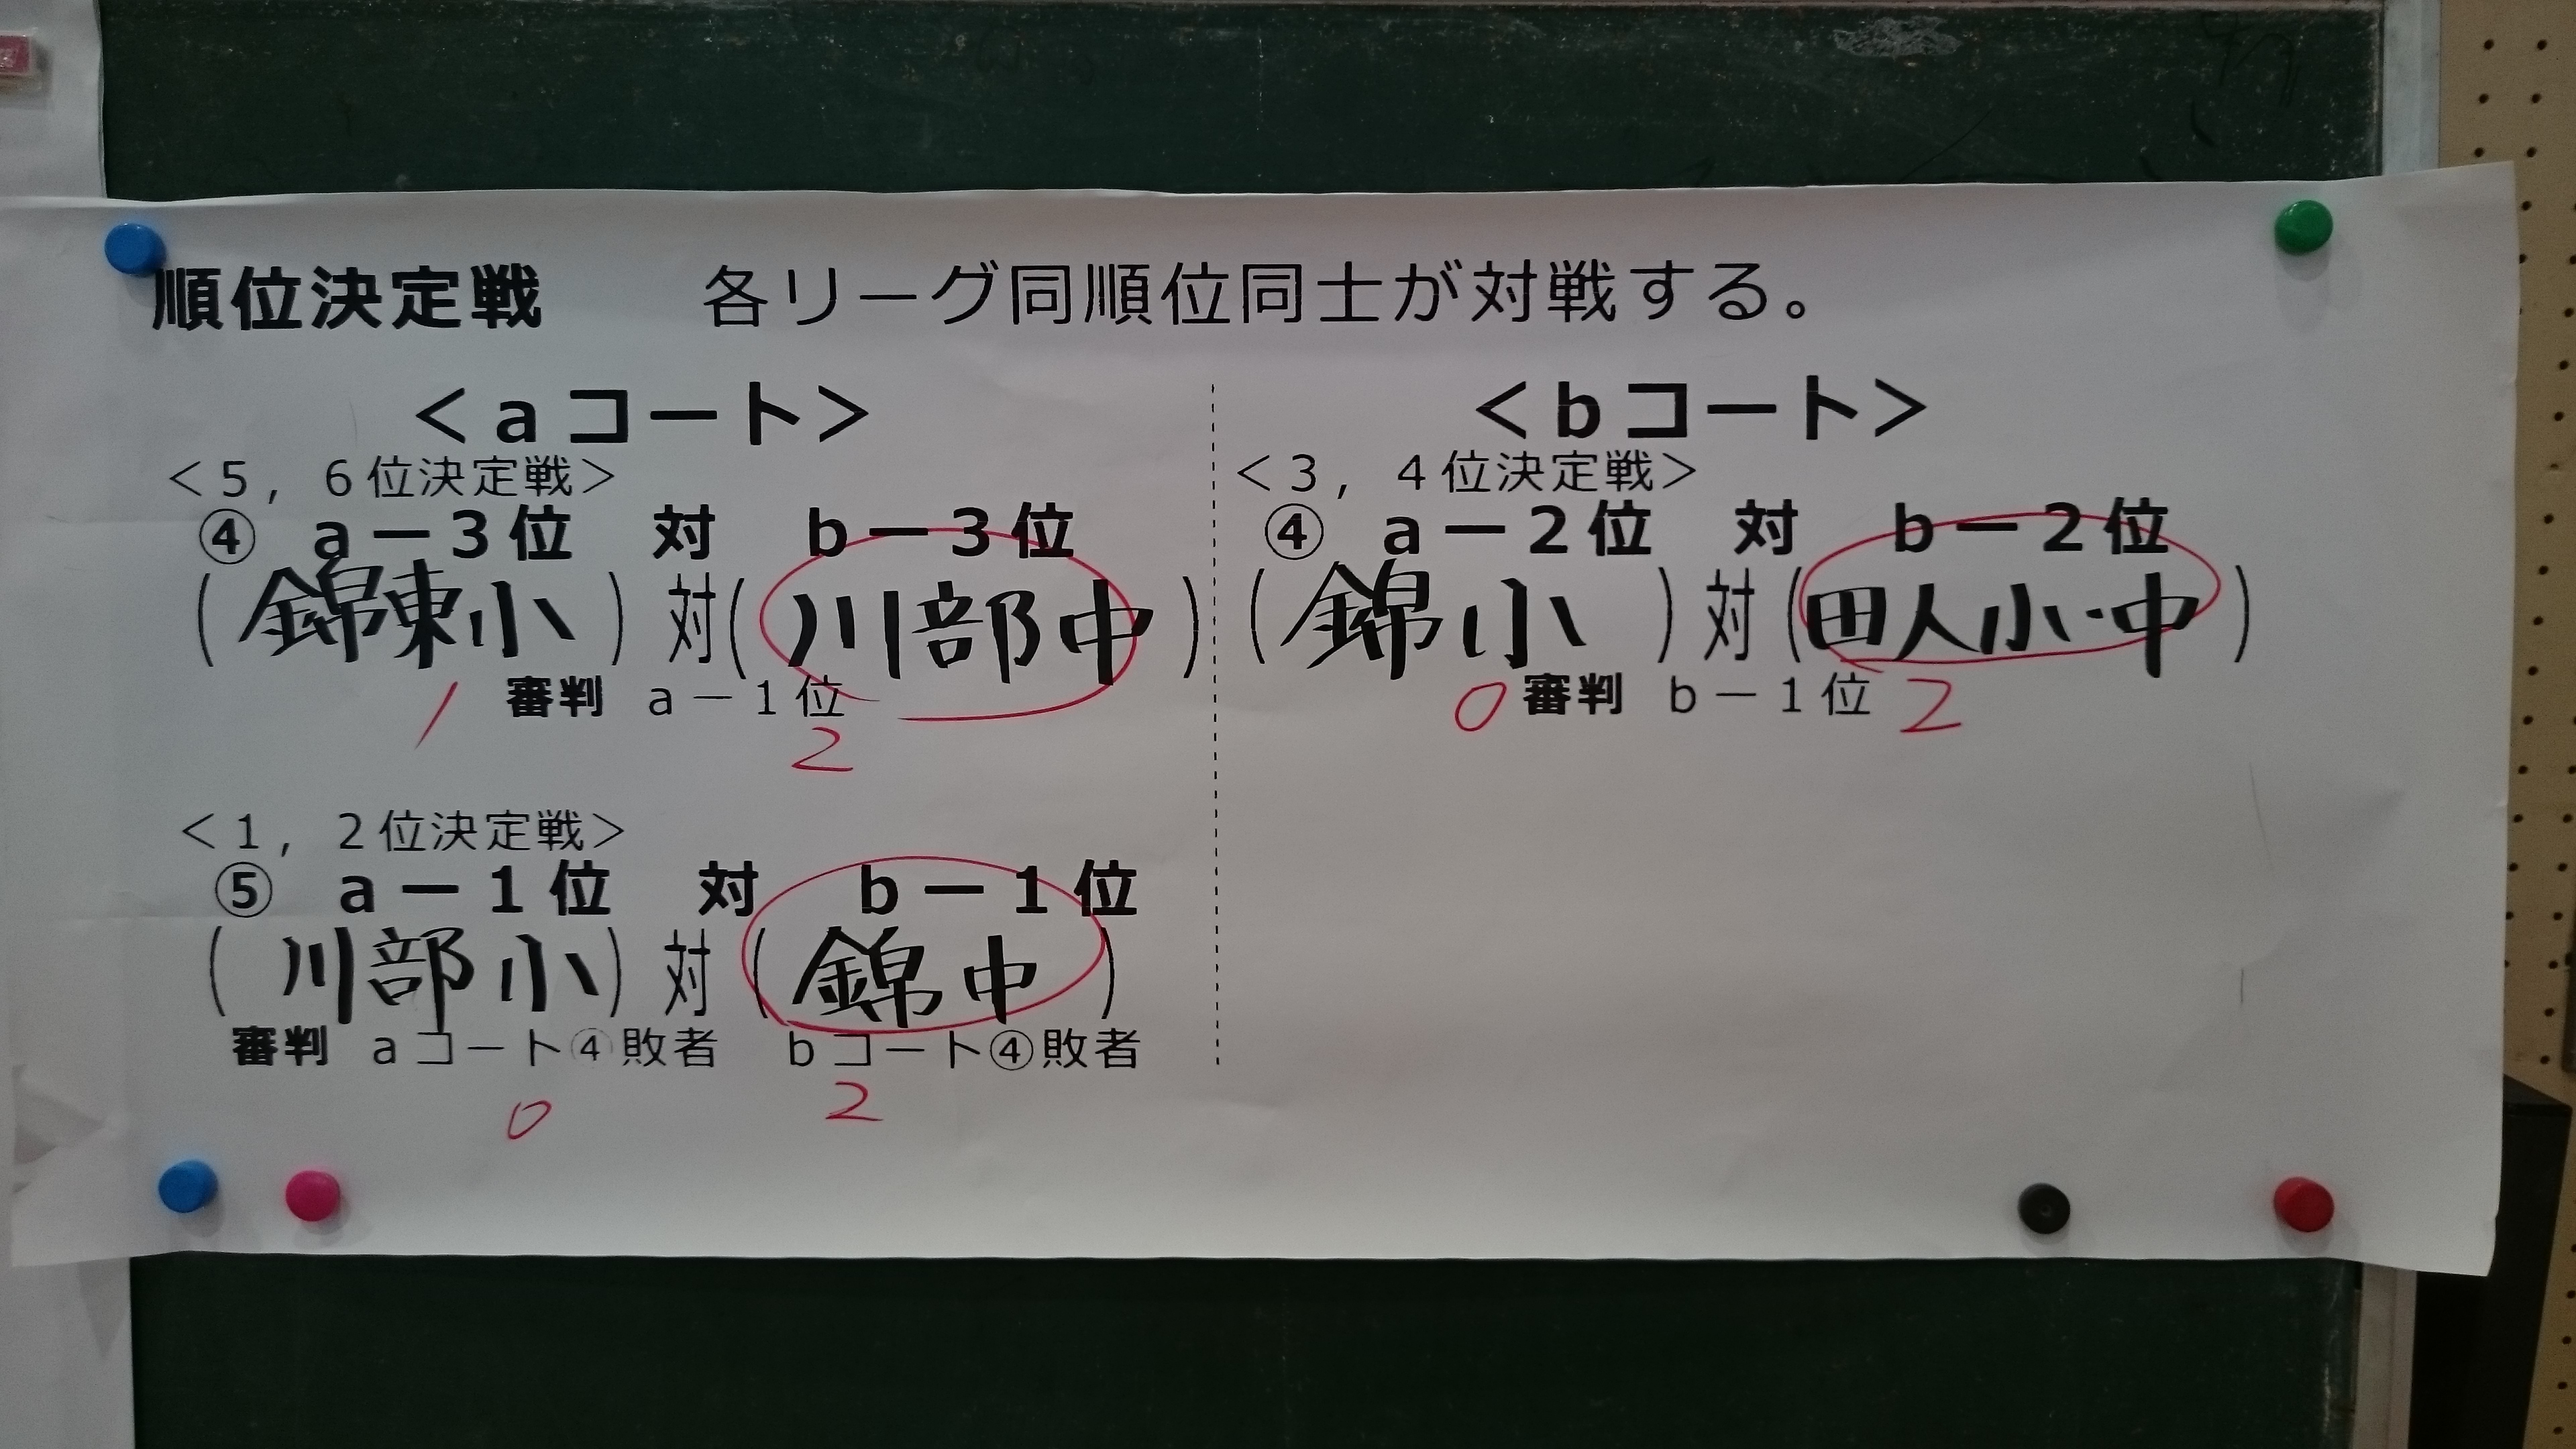 順位決定戦　各リーグ同順位同士が対戦する。
＜aコート＞
＜5，6位決定戦＞
④　a－3位　対　b－3位
（錦東小）対（川部中）
審判　a－1位
1　2
＜1，2位決定戦＞
⑤　a－1位　対　b－1位
（川部小）対（錦中）
審判　aコート④敗者　bコート④敗者
0　2
＜bコート＞
＜3，4位決定戦＞
④　a－2位　対　b－2位
（錦小）対（田人小・中）
0　審判　b－1位　2